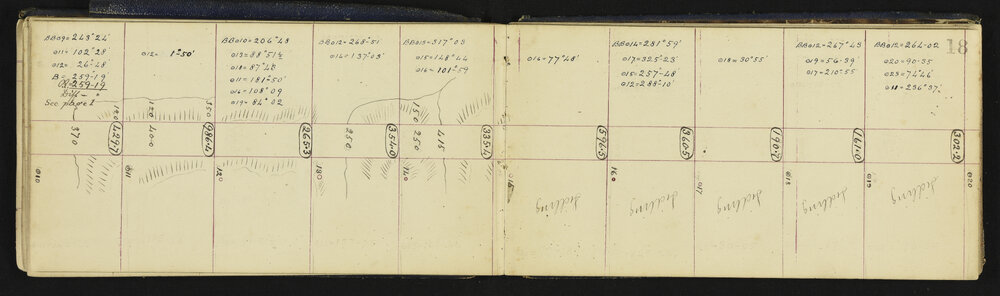 BB09=243°24'
011=102°28'
012=26°48'
B=259·19'
R=259-19
Diff — "
See page 1
012= 1°50'
BB010=206°43
013=88°51½
018=87°48'
011=181°50'
016=108°09
019=84°02
BB012=268°51'
016=137·03'
BB013=317°03
015=148°44
016=101°59
016=77°48'
BB014=281°59'
017=325°23'
015=257·48
012=288·10'
018=30°55'
BB012=267°43
019=56·39'
017=210°55'
BB012=264·02
020=90·35
023=74·46
018=236°37'
18
370
120
429.7
120
400
350
986.4
265.3
250
354.0
150
250
415
335.4
596.5
360.5
170.7
161.0
302.2
010
011
120
130
140
015
160
017
018
019
020
Sidling
Sidling
Sidling
Sidling
Sidling